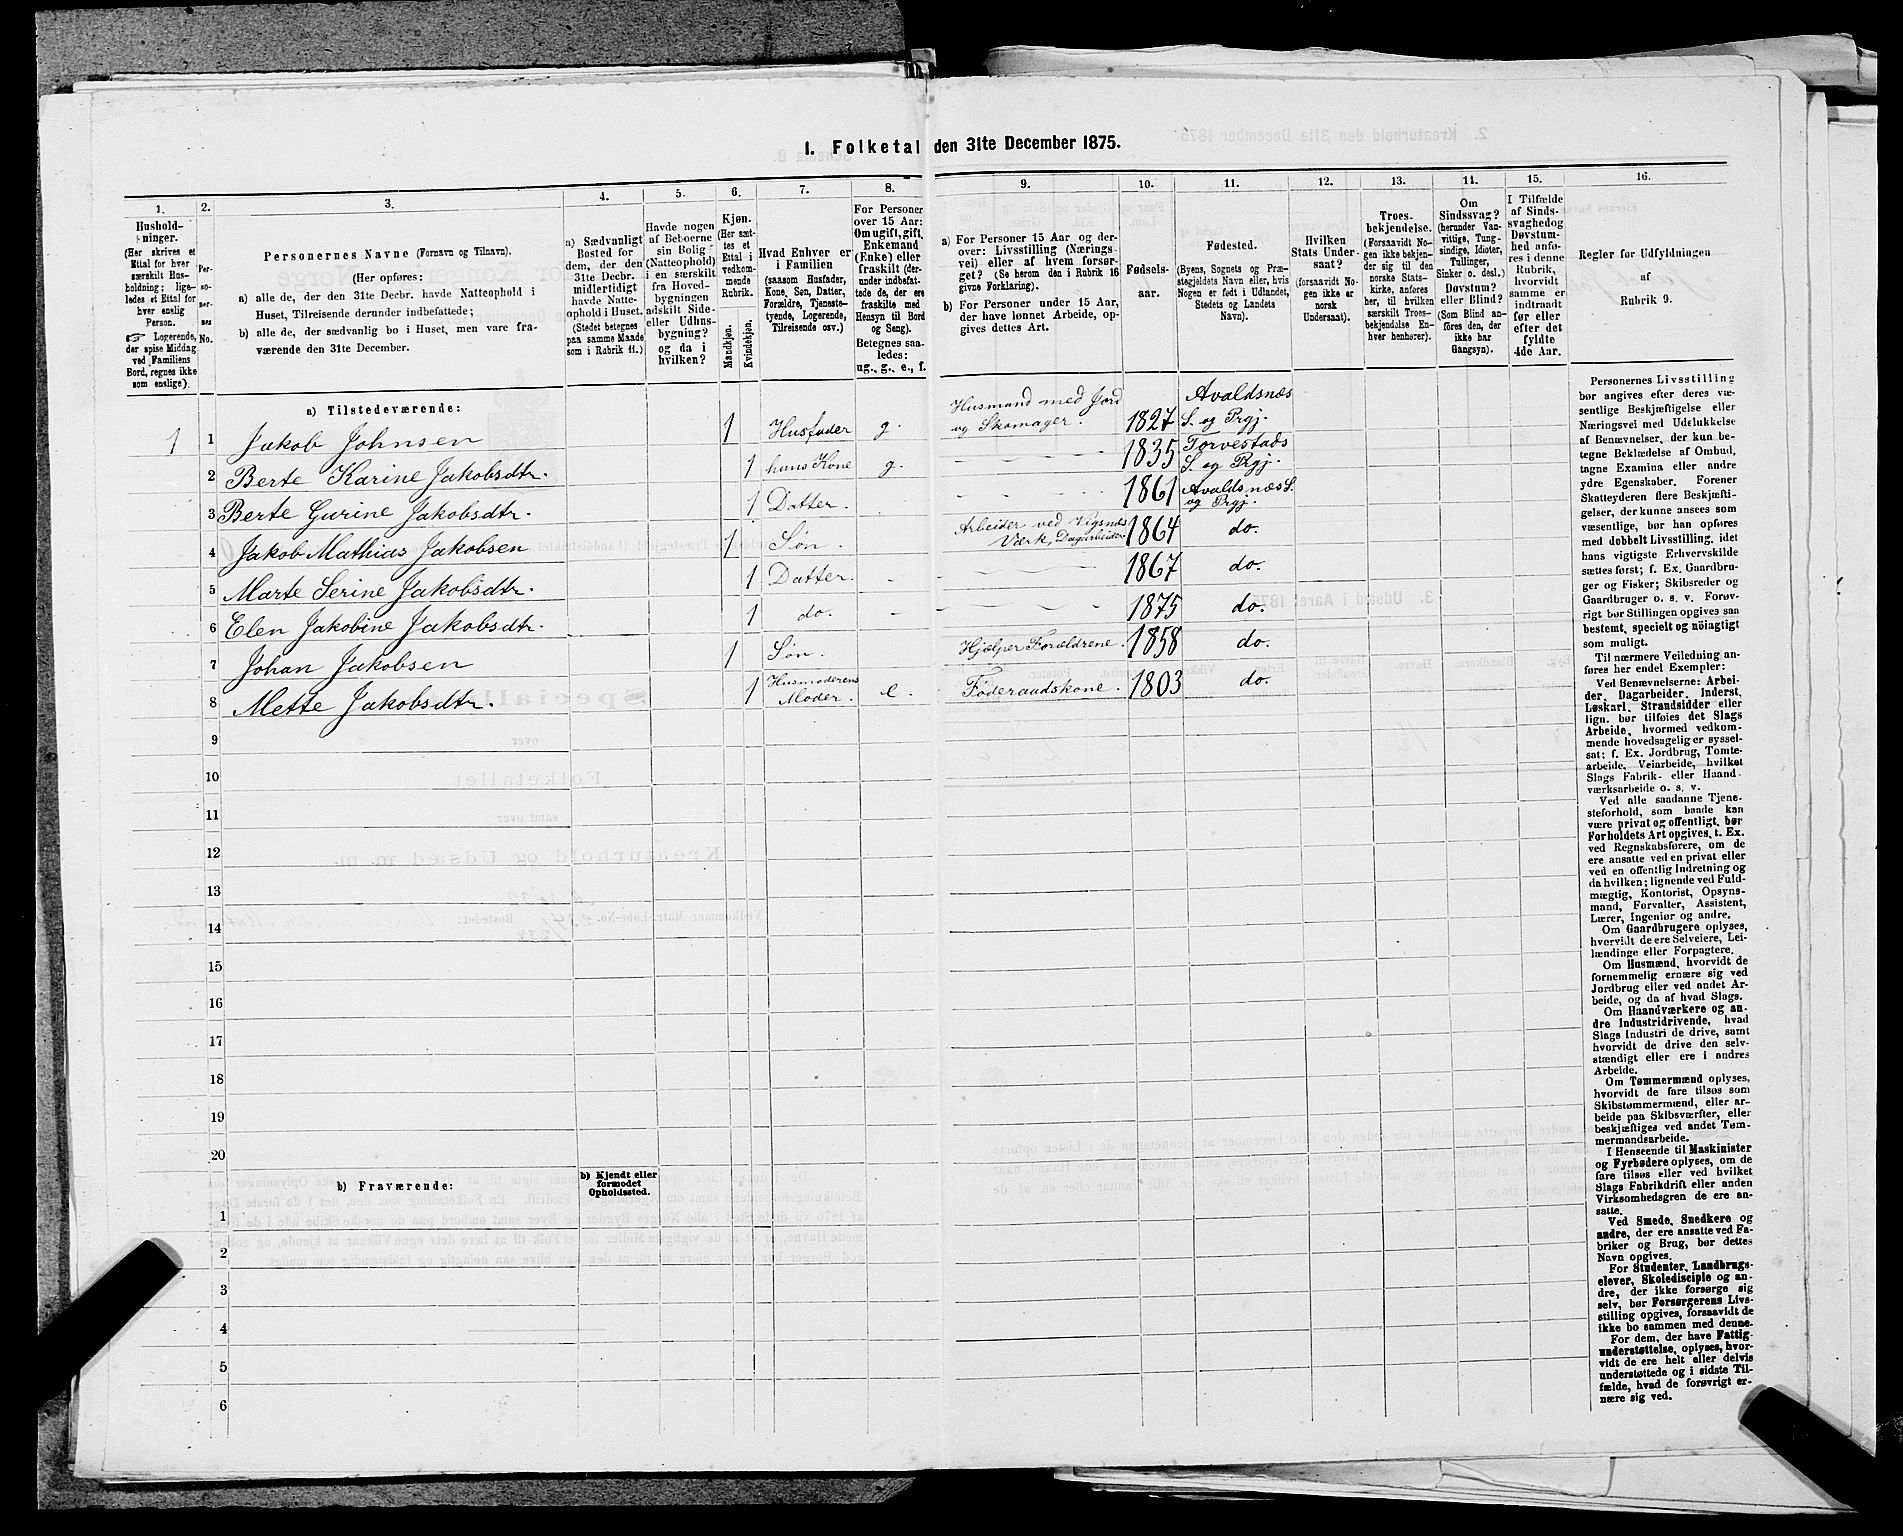 1. Folketal den 31te December 1875.
1.
Hushold-
ninger.
(Her skrives et
Ettal for hver
særskilt Hus-
holdning; lige-
ledes et Ettal for
hver enslig
Person.
☞ Logerende,
der spise Middag
ved Familiens
Bord, regnes ikke
som enslige).
2.
Per-
so-
ner-
nes
No.
3.
Personernes Navne (Fornavn og Tilnavn).
(Her opføres:
a) alle de, der den 31te Decbr. havde Natteophold i
Huset, Tilreisende derunder indbefattede;
b) alle de, der sædvanlig bo i Huset, men vare fra-
værende den 31te December.
4.
a) Sædvanligt
Bosted for
dem, der den
31te Decbr.
midlertidigt
havde Natte-
ophold i Huset.
(Stedet betegnes
paa samme Maade
som i Rubrik 11.)
5.
Havde nogen
af Beboerne
sin Bolig
(Natteophold)
i en særskilt
fra Hoved-
bygningen
adskilt Side-
eller Udhus-
bygning?
og da i
hvilken?
6.
Kjøn.
(Her sæt-
tes et
Ettal i
vedkom-
mende
Rubrik.
Mandkjøn.
Kvindekjøn.
7.
Hvad Enhver er
i Familien
(saasom Husfader,
Kone, Søn, Datter,
Forældre, Tjeneste-
tyende, Logerende,
Tilreisende osv.)
8.
For Personer
over 15 Aar:
Om ugift, gift,
Enkemand
(Enke) eller
fraskilt (der-
under indbefat-
tede de, der ere
fraskilte med
Hensyn til Bord
og Seng).
Betegnes saa-
ledes:
ug., g., e., f.
9.
a) For Personer 15 Aar og der-
over: Livsstilling (Nærings-
vei) eller af hvem forsør-
get? (Se herom den i Rubrik 16
givne Forklaring).
b) For Personer under 15 Aar,
der have lønnet Arbeide, op-
gives dettes Art.
10.
Fødsels-
aar.
11.
Fødested.
(Byens, Sognets og Præ-
stegjeldets Navn eller, hvis
Nogen er født i Udlandet,
Stedets og Landets
Navn).
12.
Hvilken
Stats Under-
saat?
(forsaavidt No-
gen ikke er
norsk
Undersaat).
13.
Troes-
bekjendelse.
(Forsaavidt No-
gen ikke bekjen-
der sig til den
norske Stats-
kirke, anføres
her, til hvilken
særskilt Troes-
bekjendelse En-
hver henhører).
14.
Om
Sindssvag?
(herunder Van-
vittige, Tung-
sindige, Idioter,
Tullinger,
Sinker o. desl.)
Døvstum?
eller Blind?
(Som Blind an-
føres den, der
ikke har
Gangsyn).
15.
I Tilfælde
af Sinds-
svaghedog
Døvstum-
hed anfø-
res i denne
Rubrik,
hvorvidt
samme er
indtraadt
før eller
efter det
fyldte
4de Aar.
16.
Regler for Udfyldningen
af
Rubrik 9.
a) Tilstedeværende:
1 1 Jakob Johnsen 1 Husfader g. Husmand med Jord og Skomager. 1827 Avaldsnes S. og Prgj.
2 Berte Karine Jakobsdtr. 1 hans Kone g. 1835 Torvestads S. og Prgj.
3 Berte Gurine Jakobsdtr. 1 Datter. 1861 Avaldsnes S. og Prgj.
4 Jakob Mathias Jakobsen 1 Søn. Arbeider ved Vigsnes Værk, Dagarbeider 1864 do.
5 Marte Serine Jakobsdtr. 1 Datter. 1867 do.
6 Elen Jakobine Jakobsdtr. 1 do. 1875 do.
7 Johan Jakobsen 1 Søn. Hjælper Forældrene. 1858 do.
8 Mette Jakobsdtr. 1 Husmoderens Moder. e. Føderaadskone. 1803 do.
9
10
11
12
13
14
15
16
17
18
19
20
b) Fraværende:
b) Kjendt eller
formodet
Opholdssted.
1
2
3
4
5
6
Personernes Livsstilling
bør angives efter deres væ-
sentlige Beskjæftigelse eller
Næringsvei med Udelukkelse
af Benævnelser, der kun be-
tegne Beklædelse af Ombud,
tagne Examina eller andre
ydre Egenskaber. Forener
Skatteyderen flere Beskjæfti-
gelser, der kunne ansees som
væsentlige, bør han opføres
med dobbelt Livsstilling, idet
hans vigtigste Erhvervskilde
sættes først; f. Ex. Gaardbru-
ger og Fisker; Skibsreder og
Gaardbruger o. s. v. Forøv-
rigt bør Stillingen opgives saa
bestemt, specielt og nöiagtigt
som muligt.
Til nærmere Veiledning an-
føres her endel Exempler:
Ved Benævnelserne: Arbei-
der, Dagarbeider, Inderst,
Løskarl, Strandsidder eller
lign. bør tilføies det Slags
Arbeide, hvormed vedkom-
mende hovedsagelig er syssel-
sat; f. Ex. Jordbrug, Tomte-
arbeide, Veiarbeide, hvilket
Slags Fabrik- eller Haand-
værksarbeide o. s. v.
Ved alle saadanne Tjene-
steforhold, som baade kan
være privat og offentligt, bør
Forholdets Art opgives, t. Ex.
ved Regnskabsførere, om de
ere ansatte ved en privat eller
ved en offentlig Indretning og
da hvilken; lignende ved Fuld-
mægtig, Kontorist, Opsyns-
mand, Forvalter, Assistent,
Lærer, Ingeniør og andre.
Om Gaardbrugere oplyses,
hvorvidt de ere Selveiere, Lei-
lændinge eller Forpagtere.
Om Husmænd, hvorvidt de
fornemmelig ernære sig ved
Jordbrug eller ved andet Ar-
beide, og da af hvad Slags.
Om Haandværkere og an-
dre Industridrivende, hvad
Slags Industri de drive, samt
hvorvidt de drive den selv-
stændigt eller ere i andres
Arbeide.
Om Tømmermænd oplyses,
hvorvidt de fare tilsøs som
Skibstømmermænd, eller ar-
beide paa Skibsværfter, eller
beskjæftiges ved andet Tøm-
mermandsarbeide.
I Henseende til Maskinister
og Fyrbødere oplyses, om de
fare tilsøs eller ved hvilket
Slags Fabrikdrift eller anden
Virksomhedsgren de ere an-
satte.
Ved Smede, Snedkere og
andre, der ere ansatte ved Fa-
briker og Brug, bør dettes
Navn opgives.
For Studenter, Landbrugs-
elever, Skoledisciple og an-
dre, der ikke forsørge sig
selv, bør Forsørgerens Livs-
stilling opgives, forsaavidt de
ikke bo sammen med denne.
For dem, der have Fattig-
understøttelse, oplyses, hvor-
vidt de ere helt eller delvis
understøttede og i sidste Til-
fælde, hvad de forøvrigt er-
nære sig ved.